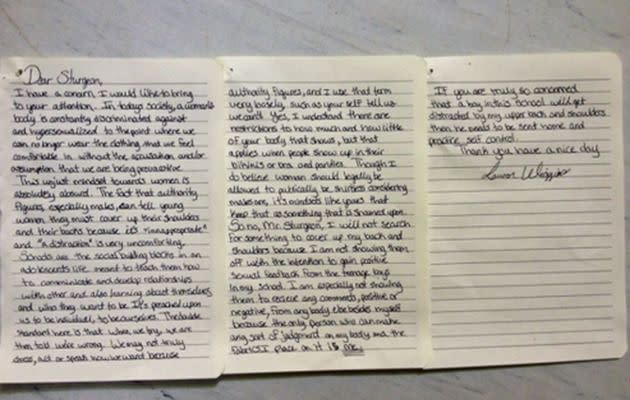 Dear Sturgeon,
I have a concern I would like to bring
to your attention. In todays society, a woman's
body is constantly discriminated against
and hypersexualized to the point where we
can no longer wear the clothing that we feel
comfortable in without the accusation and/or
assumption that we are being provocative.
This unjust mindset towards women is
absolutely absurd. The fact that authority
figures, especially males, can tell young
women they must cover up their shoulders
and their backs because it's "innapropriate"
and "a distraction" is very uncomforting.
Schools are the social building blocks in an
adolescents life meant to teach them how
to communicate and develope relationships
with other and also learning about themselves
and who they want to be. It's preached upon
us to be individual, to be ourselves. The double
standard here is that when we try, we are
then told we're wrong. We may not truly
dress, act or speak how we want because
authority figures, and I use that term
very loosely, such as your self tell us
we can't. Yes, I understand there are
restrictions to how much and how little
of your body that shows, but that
applies when people show up in their
bikinis or bra and panties. Though I
do believe woman should legally be
allowed to publically be shirtless considering
males are, it's mindsets like yours that
keep that as something that is shamed upon.
So no, Mr. Sturgeon, I will not search
for something to cover up my back and
shoulders because I am not showing them
off with the intention to gain positive
sexual feedback from the teenage boys
in my school. I am especially not showing
them to recieve any comments, positive or
negative, from any body else besides myself
because the only person who can make
any sort of judgement on my body and the
fabrics I place on it is me.
If you are truly so concerned
that a boy in this school will get
distracted by my upper back and shoulders
then he needs to be sent home and
practice self control.
Thank you have a nice day
Lauren Wiggins